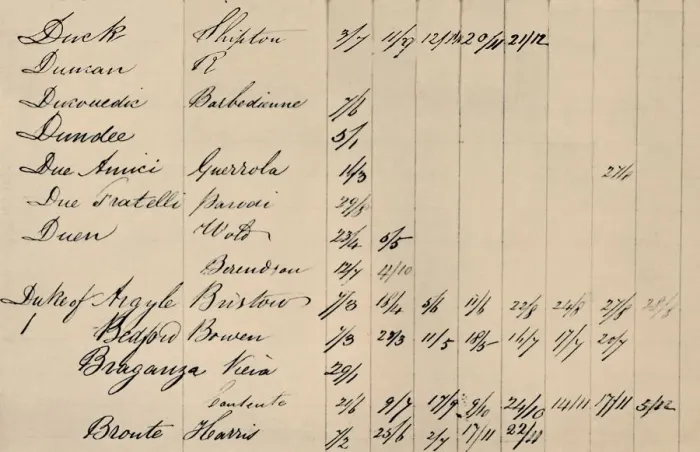 Duck Shipton 3/7 11/27 20/11 21/12
Duncan R
Ducouedic Barbedienne 7/6
Dundee 5/1
Due Amici Guerrola 14/3 27/4
Due Fratelli Parodi 29/3
Duen Wold 23/4 5/5
Berendson 12/7 4/10
Duke of Argyle Bristow 7/3 18/4 5/6 22/8 24/8 27/8 28/8
Bedford Bowen 7/3 23/3 11/5 18/5 16/7 17/7 20/7
Braganza Vieia 29/1
Contente 21/6 9/7 17/9 9/10 24/10 14/11 17/11
Bronte Harris 7/2 25/6 2/7 17/11